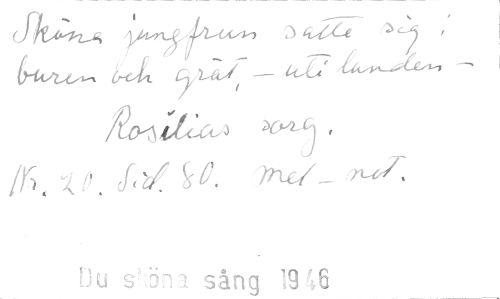 Sköna jungfrun satte sig i
buren och grät, – uti lunden –
Rosilias sorg.
Nr. 20. Sid. 80. mel – not.
Du sköna sång 1946